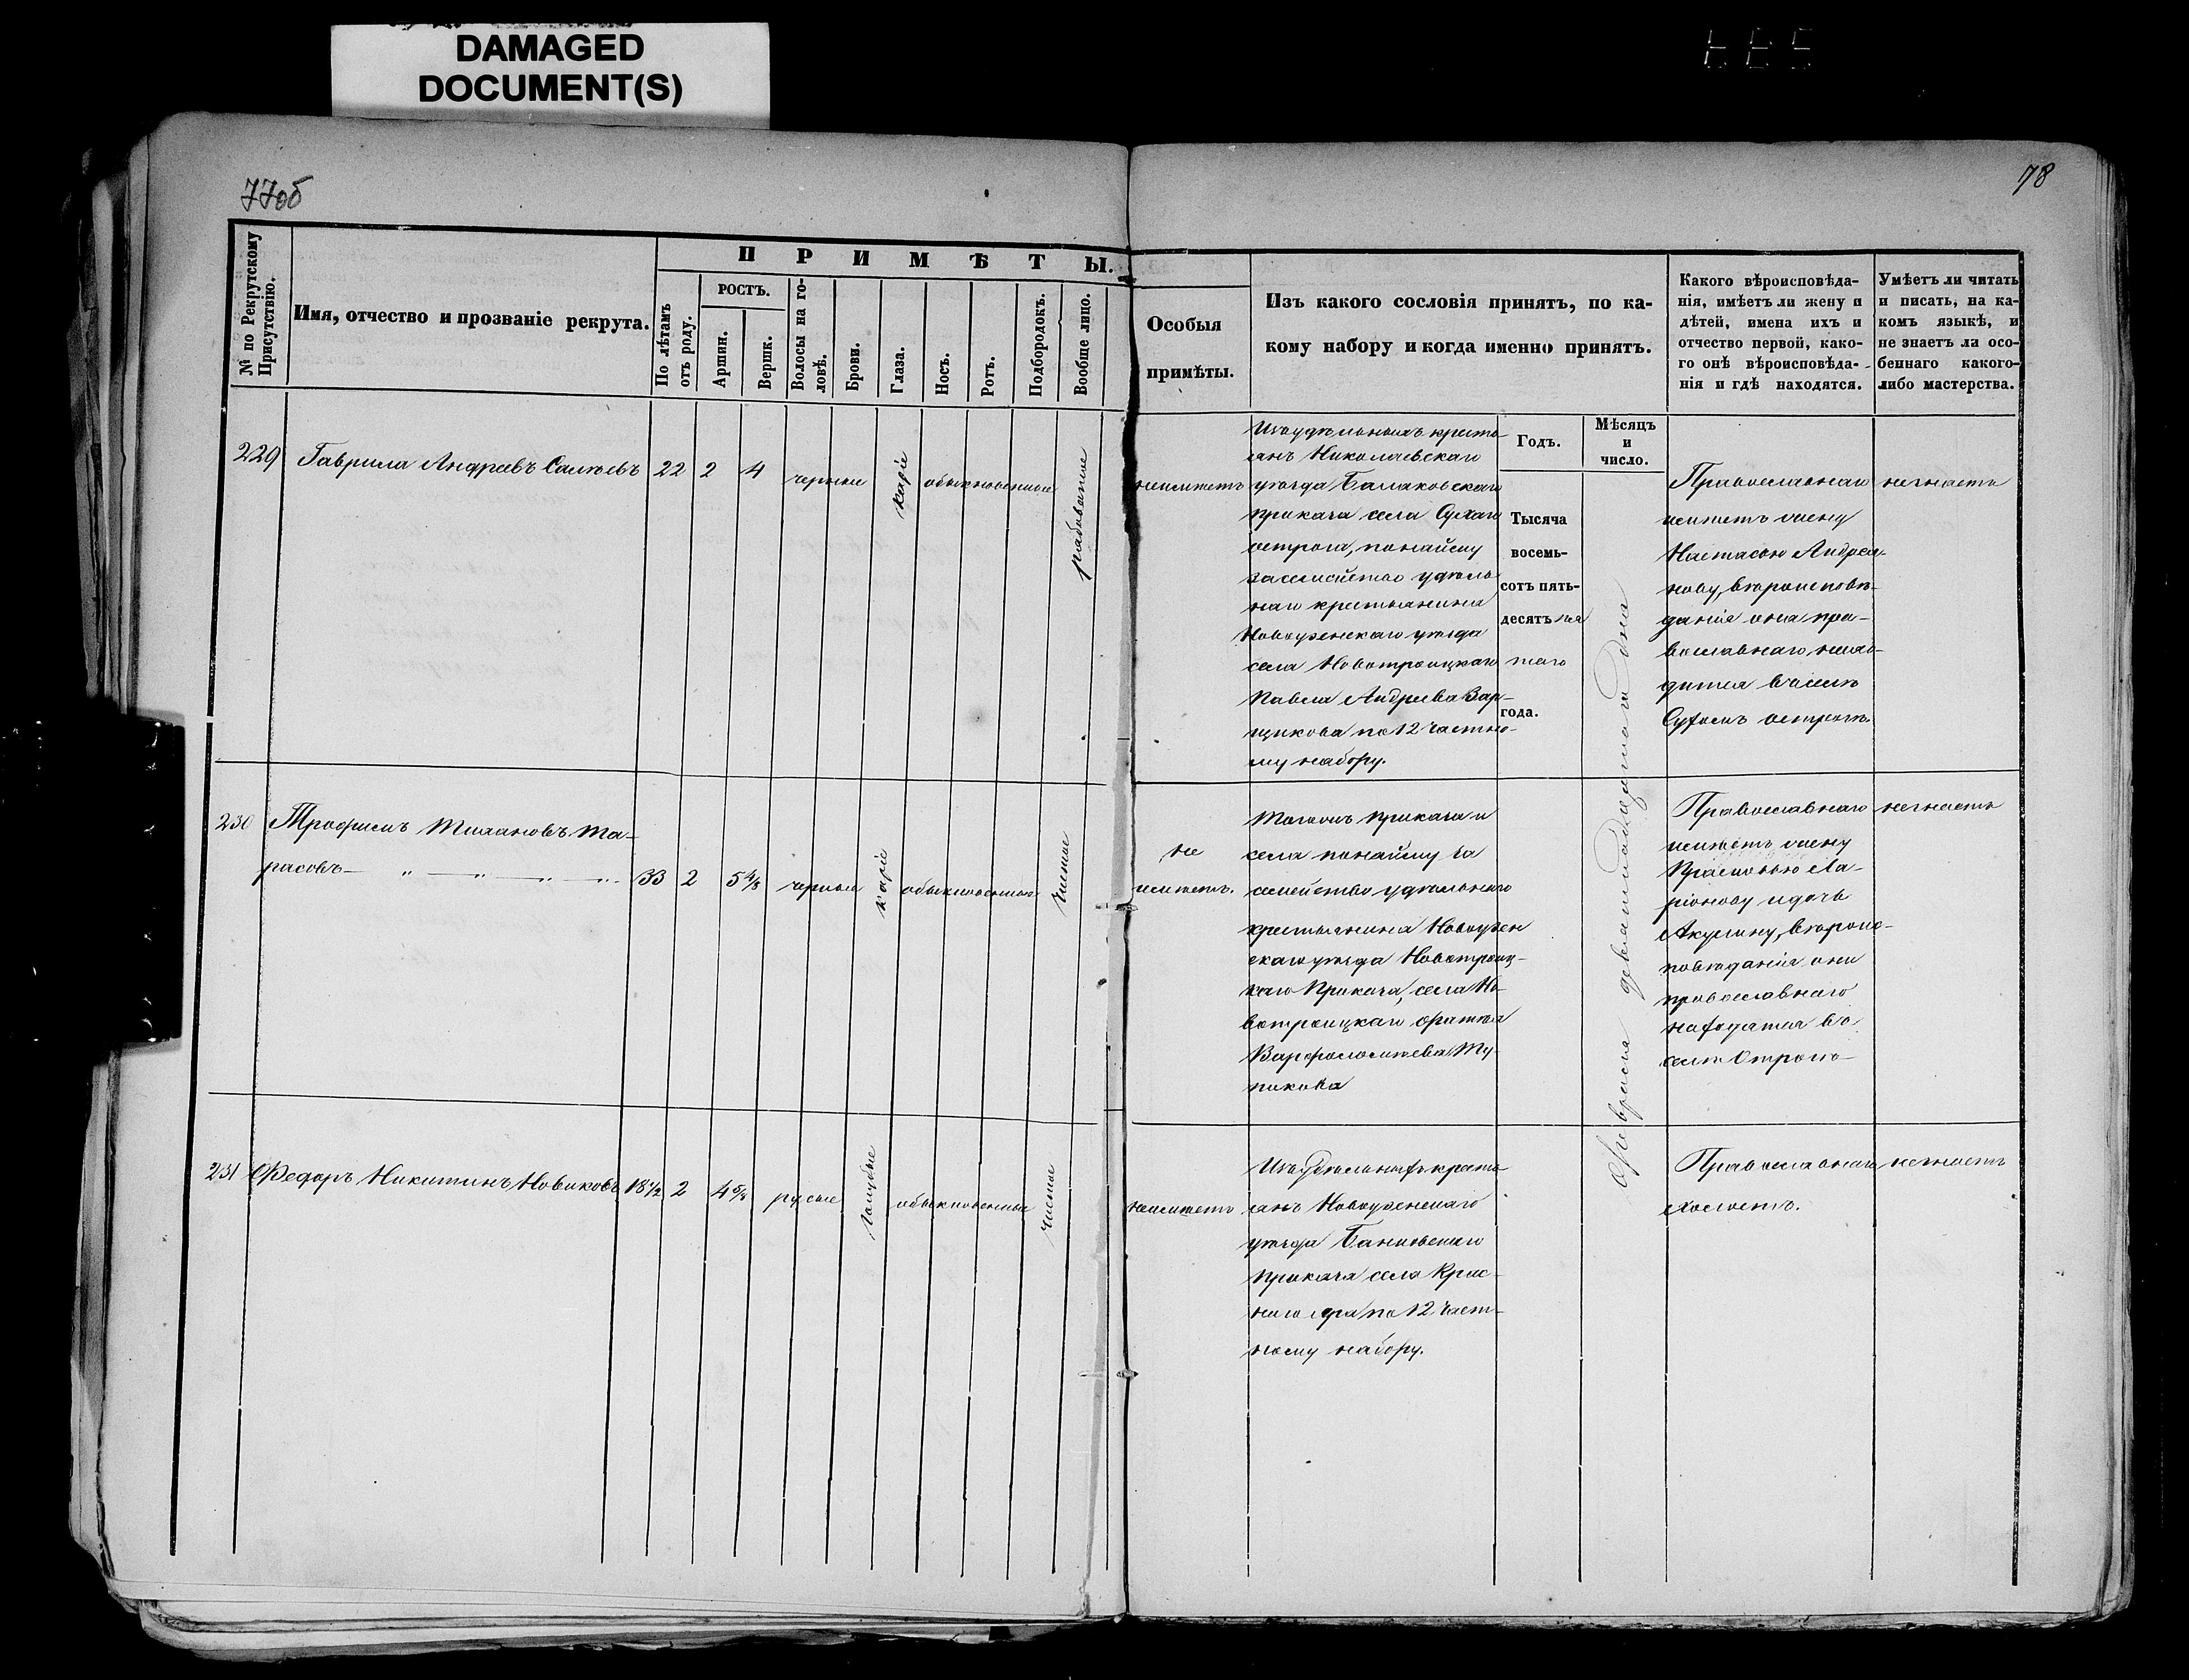 DAMAGED
DOCUMENT(S)
77об
78
№ по Рекрутскому Присутствію.
Имя, отчество и прозваніе рекрута.
ПРИМѢТЫ.
По лѣтамъ отъ роду.
РОСТЪ.
Аршин.
Вершк.
Волосы на головѣ.
Брови.
Глаза.
Носъ.
Ротъ.
Подбородокъ.
Вообще лицо.
Особыя
примѣты.
Изъ какого сословія принятъ, по ка-
кому набору и когда именно принятъ.
Какого вѣроисповѣда-
нія, имѣетъ ли жену и
дѣтей, имена ихъ и
отчество первой, како-
го онѣ вѣроисповѣда-
нія и гдѣ находятся.
Умѣетъ ли читать
и писать, на ка-
комъ языкѣ, и
не знаетъ ли осо-
беннаго какого-
либо мастерства.
Годъ.
Мѣсяцъ
и
число.
229 Гаврила Андреевъ 22 2 4 черные каріе обыкновенные рябоватое
неимѣетъ
Изъ удѣльныхъ кресть
янъ Николаевскаго
уѣзда Балаковскаго
приказа села Сухаго
острога, понайму
засемейство удѣль
наго крестьянина
Новоузенскаго уѣзда
села Новотроицкаго
Павла Андреева Вар-
щикова по 12 частно-
му набору.
Тысяча
восемь-
сотъ пять-
десятъ пя
таго
года.
Февраля девятнадцатаго дня
Православнаго
имѣетъ жену
Настасью Андрея-
нову, вѣроисповѣ-
данія она пра-
вославнаго нахо-
дится въ селѣ
Сухомъ острогѣ.
незнаетъ
230 Трофимъ Та-
расовъ — „ — „ — „ — „ 33 2 5 4/8 черные каріе обыкновенные чистое
не
имѣетъ.
Тогожъ приказа и
села понайму за
семейство удѣльнаго
крестьянина Новоузен
скаго уѣзда Новотроиц-
каго Приказа, села Но-
вотроицкаго
Варфоломѣева Ту-
пикова
Православнаго
имѣетъ жену
Прасковью Ла-
ріонову и дочь
Акулину, вѣроис-
повѣданія они
православнаго
находятся въ
селѣ Острогѣ
незнаетъ
231 Федоръ Никитинъ Новиковъ 18½ 2 4 5/8 русые голубые обыкновенные чистое
неимѣетъ
Изъ Удѣльныхъ кресть
янъ Новоузенскаго
уѣзда
приказа села Крас-
наго яра по 12 част-
ному набору.
Православнаго
холостъ.
незнаетъ